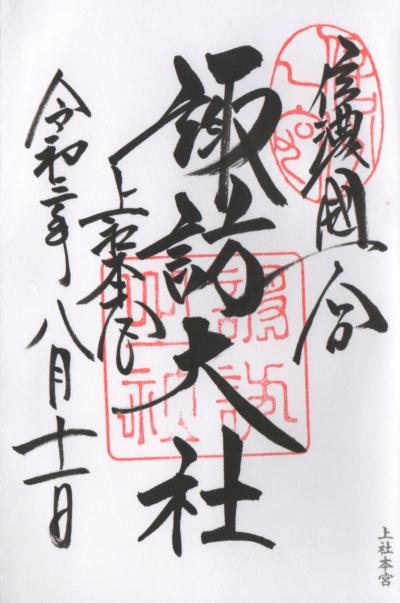 信濃國一宮
諏訪大社
上社本宮
令和三年
八月十一日
諏訪
大社
上社本宮